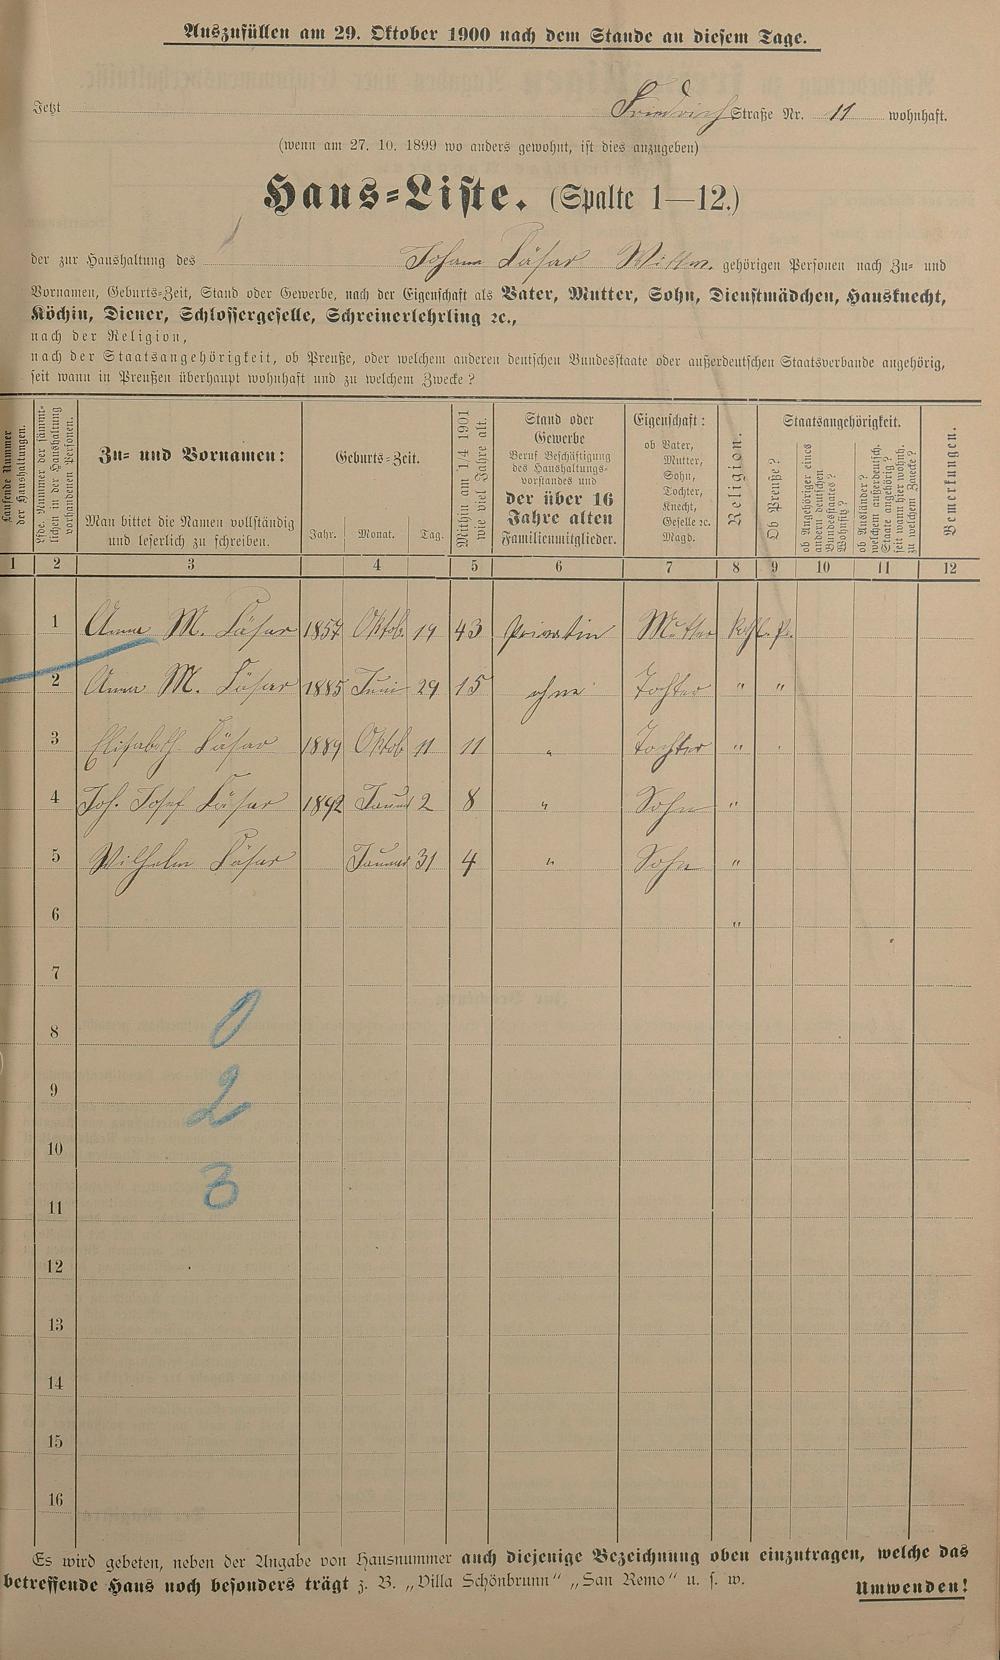 Auszufüllen am 29. Oktober 1900 nach dem Stande an diesem Tage.
Jetzt Friedrich Straße Nr. 11 wohnhaft.
(wenn am 27. 10. 1899 wo anders gewohnt, ist dies anzugeben)
Haus=Liste. (Spalte 1—12.)
der zur Haushaltung des Johann Käsar Wittw. gehörigen Personen nach Zu= und
Vornamen, Geburts=Zeit, Stand oder Gewerbe, nach der Eigenschaft als Vater, Mutter, Sohn, Dienstmädchen, Hausknecht,
Köchin, Diener, Schlossergeselle, Schreinerlehrling ꝛc.,
nach der Religion,
nach der Staatsangehörigkeit, ob Preuße, oder welchem anderen deutschen Bundesstaate oder außerdeutschen Staatsverbande angehörig,
seit wann in Preußen überhaupt wohnhaft und zu welchem Zwecke?
Laufende Nummer der Haushaltungen.
Lfde. Nummer der sämmtlichen in der Haushaltung vorhandenen Personen.
Zu= und Vornamen:
Man bittet die Namen vollständig
und leserlich zu schreiben.
Geburts=Zeit.
Jahr. Monat. Tag.
Mithin am 1/4 1901 wie viel Jahre alt.
Stand oder
Gewerbe
Beruf Beschäftigung
des Haushaltungs=
vorstandes und
der über 16
Jahre alten
Familienmitglieder.
Eigenschaft:
ob Vater,
Mutter,
Sohn,
Tochter,
Knecht,
Geselle ꝛc.
Magd.
Religion.
Staatsangehörigkeit.
Ob Preuße?
ob Angehöriger eines andern deutschen Bundesstaates? Wohnsitz?
ob Ausländer? welchem außerdeutsch. Staate angehörig? seit wann hier wohnh. zu welchem Zwecke?
Bemerkungen.
1 2 3 4 5 6 7 8 9 10 11 12
1 Anna M. Käsar 1857 Oktob. 19 43 Privatin Mutter Kath. Pr.
2 Anna M. Käsar 1885 Juni 29 15 ohne Tochter " "
3 Elisabeth Käsar 1889 Oktob 11 11 " Tochter "
4 Joh. Josef Käsar 1892 Januar 2 8 " Sohn "
5 Wilhelm Käsar Januar 31 4 " Sohn "
6 "
7
8 0
9 2
10
11 3
12
13
14
15
16
Es wird gebeten, neben der Angabe von Hausnummer auch diejenige Bezeichnung oben einzutragen, welche das
betreffende Haus noch besonders trägt z. B. „Villa Schönbrunn" „San Remo" u. s. w.
Umwenden!